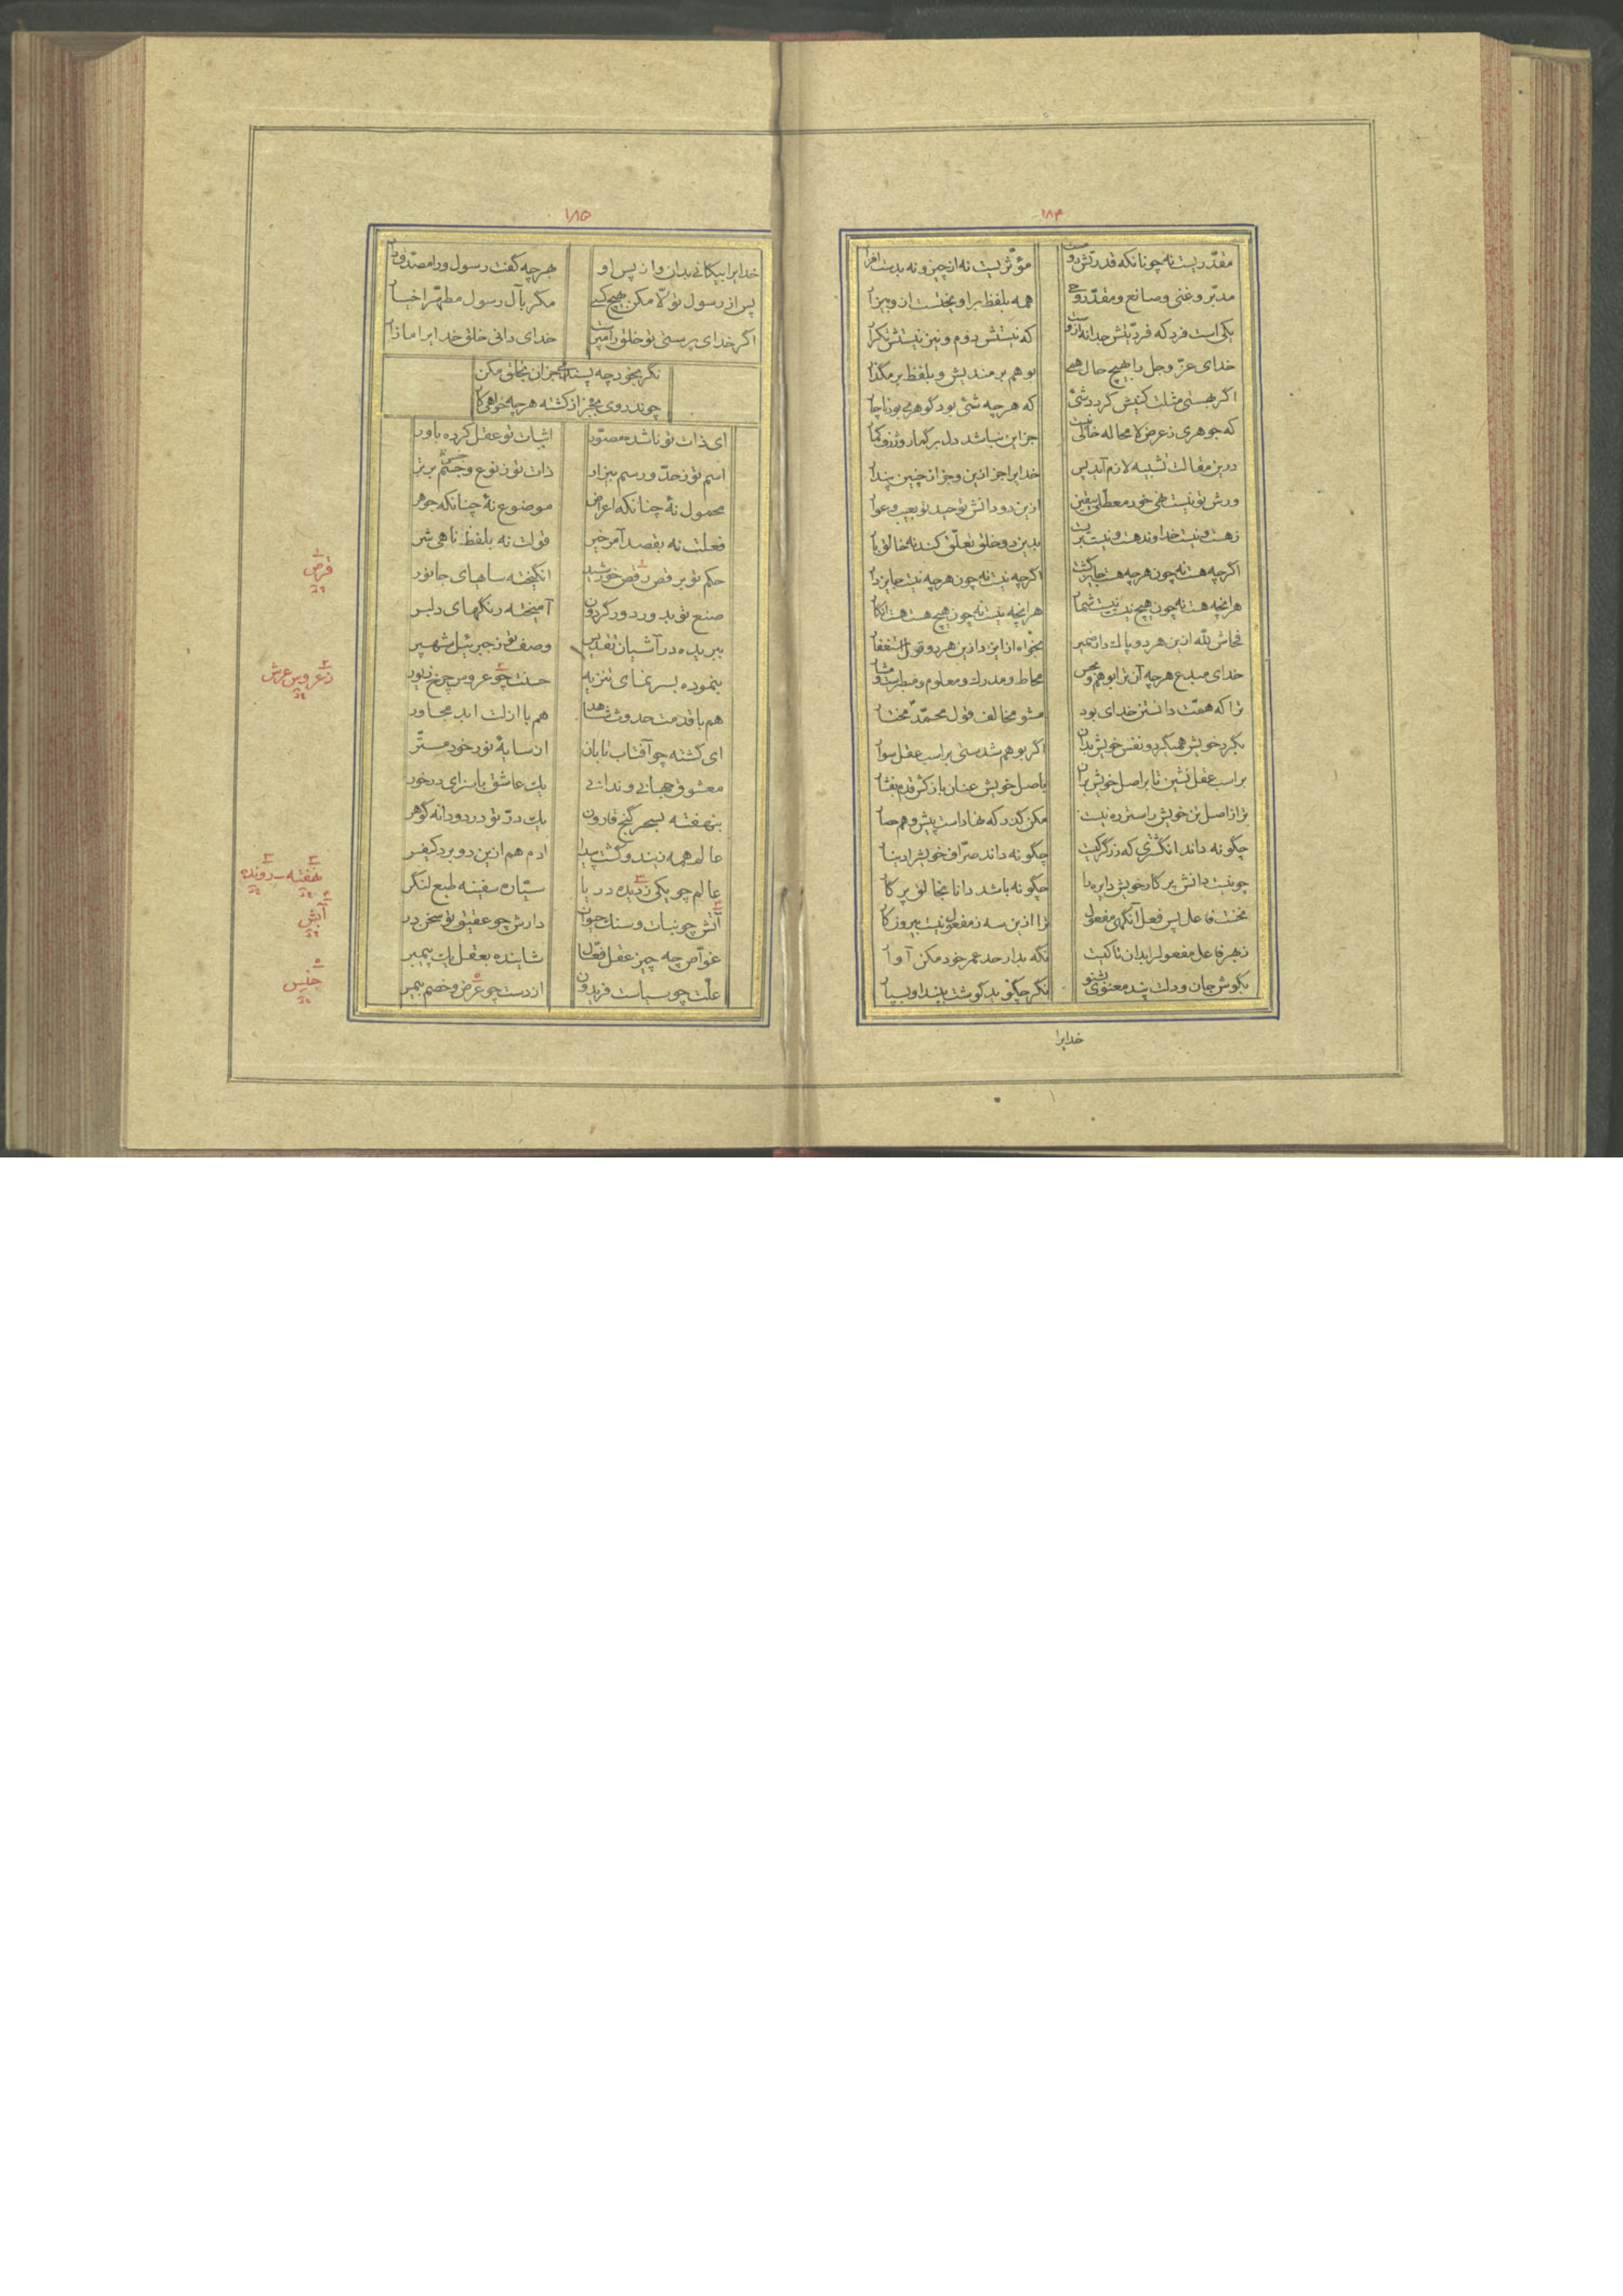 ۱۸۴
مقدّریست نه چونانکه قدرتش دوست مؤثریست نه از چیز و نه بدست افزار
مدبّر و غنی و صانع و مقدّر و حی همه بلفظ براو بخنست ازو بیزار
یکی است فرد که فردیّتش جدا نه ازوست که نیستش دوم و نیز نیستش تکرار
خدای عزّ و جل را بهیچ حال همی بوهم برمندیش و بلفظ برمگذار
اگر بهستی مثلت کنیش گردد شئ که هرچه شئ بود گوهری بود ناچار
که جوهری ز عرض لا محاله خالی نیست جز این نباشد دل بر گمار و ژرف گمار
درین مقالت تشبیه لازم آید پس خدایرا جز ازین و جز از چنین پندار
ورش تو نیست همی خود معطّلی بیقین ازین دو دانش توحید تو بعیب و عوار
ز هست و نیست خداوند هست و نیست بریست بدین دو خلق تعلّق کند نه خالق بار
اگرچه هست نه چون هرچه هست جایز گشت اگرچه نیست نه چون هرچه نیست جایز دار
هرآنچه هست نه چون هیچ نیست نیست شمار هرآنچه نیست نه چون هیچ هست هست انگار
فحاش لله ازین هر دو پاک دار ضمیر بخواه ازین و ازین هر دو قول استغفار
خدای مبدع هرچه آن ترا بوهم و بحس محاط و مدرک و معلوم و مبصرست و مشار
ترا که همّت دانستن خدای بود مشو مخالف قول محمّد مختار
بگرد خویش همیگرد و نفس خویش بدان اگر بوهم شدستی براسب عقل سوار
براسب عقل نشین تا براصل خویش بران باصل خویش عنان باز کش قدم بفشار
ترا ز اصل تن خویش راستر ره نیست مکن گذر که نهادست پیش و هم حصار
چگونه داند انگشتری که زرگر کیست چگونه داند صرّاف خویش را دینار
چو نیست دانش پرکار خویش دایره را چگونه باشد دانا بخالق پرگار
نخست فاعل پس فعل آنگهی مفعول ترا ازین سه ز مفعول نیست بیرون کار
ز بهر فاعل مفعول را بدان تا کیست نگه بدار حد عمر خود مکن آوار
بگوش جان و دلت پند معنوی بشنو نگر چگونه بد گوشت پند او بسپار
خدایرا
۱۸۵
خدایرا بیگانگی بدان و از پس او هرچه گفت رسول ورا مصدّق دار
پس از رسول تولّا مکن بهیچ کسی مگر بآل رسول مطهّر اخیار
اگر خدای پرستی تو خلق را مپرست خدای دانی خلق خدایرا مازار
نگر بخود چه پسندی جز آن بخلق مکن
چو ندروی بجز از کشته هرچه خواهی کار
ای ذات تو ناشده مصوّر اثبات تو عقل کرده باور
اسم تو ز حدّ و رسم بیزار ذات تو ز نوع و جنس برتر
محمول نهٔ چنانکه اعراض موضوع نهٔ چنانکه جوهر
فعلت نه بقصد آمر خیر قولت نه بلفظ ناهی شر
حکم تو برقص رقص خورشید انگیخته سایهای جانور
صنع تو بدور دور گردون آمیخته رنگهای دلبر
ببریده در آشیان تقدیس وصف تو ز جبرئیل شهپر
بنموده بسر نمای تنزیه حسنت چو عروس چرخ زیور
هم با قدمت حدوث شاهد هم با ازلت ابد مجاور
ای گشته چو آفتاب تابان از سایهٔ نور خود مستّر
معشوق جهانی و ندانی یک عاشق با سزای درخور
بنهفته بسحر گنج قارون یک درّ تو در دو دانه گوهر
عالم همه زیند و گشت پیدا آدم هم ازین دو برد کیفر
عالم چو یکی ز دیده دریا ستّاره سفینه طبع لنگر
آتش چو نبات و سنک حیوان دارش چو عقیق تو سخن در
غوّاص چه چیز عقل فعّال شاینده بعقل یک پیمبر
علّت چو سیاست فریدون از دست چو عرض و خصم بیمر
قرص
ز عروس عرش
نهفته - رونده
آبش
جلیس